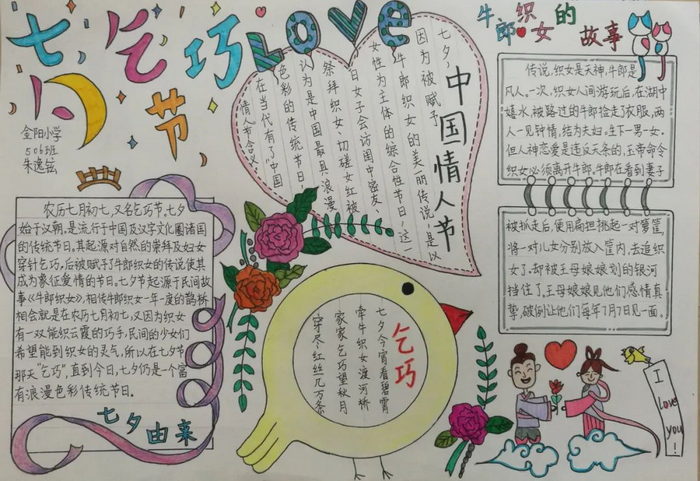 七夕
乞巧
节
LOVE
金阳小学
506班
朱逸铉
农历七月初七,又名乞巧节,七夕
始于汉朝,是流行于中国及汉字文化圈诸国
的传统节日,其起源对自然的崇拜及妇女
穿针乞巧,后被赋予了牛郎织女的传说使其
成为象征爱情的节日。七夕节起源于民间故
事《牛郎织女》,相传牛郎织女一年一度的鹊桥
相会就是在农历七月初七,又因为织女
有一双能织云霞的巧手,民间的少女们
希望能到织女的灵气,所以在七夕节
那天"乞巧",直到今日,七夕仍是一个富
有浪漫色彩传统节日。
七夕由来
中国情人节
七夕
因为被赋予
牛郎织女的美丽传说,是以
女性为主体的综合性节日,这一
日女子会访闺中密友
祭拜织女、切磋女红被
认为是中国最具浪漫
色彩的传统节日,
在当代有了中国
情人节含义。
乞巧
七夕今宵看碧霄
牵牛织女渡河桥
家家乞巧望秋月
穿尽红丝几万条
牛郎织女的
故事
传说,织女是天神,牛郎是
凡人。一次,织女人间游玩后,在湖中
嬉水,被路过的牛郎捡走了衣服,两
人一见钟情,结为夫妇,生下一男一女。
但人神恋爱是违反天条的,玉帝命令
织女必须离开牛郎,牛郎在看到妻子
被抓走后,使用扁担挑起一对箩筐,
将一对儿女分别放入筐内,去追织
女了,却被王母娘娘划的银河
挡住了。王母娘娘见他们感情真
挚,破例让他们每年7月7日见一面。
I
love
you!